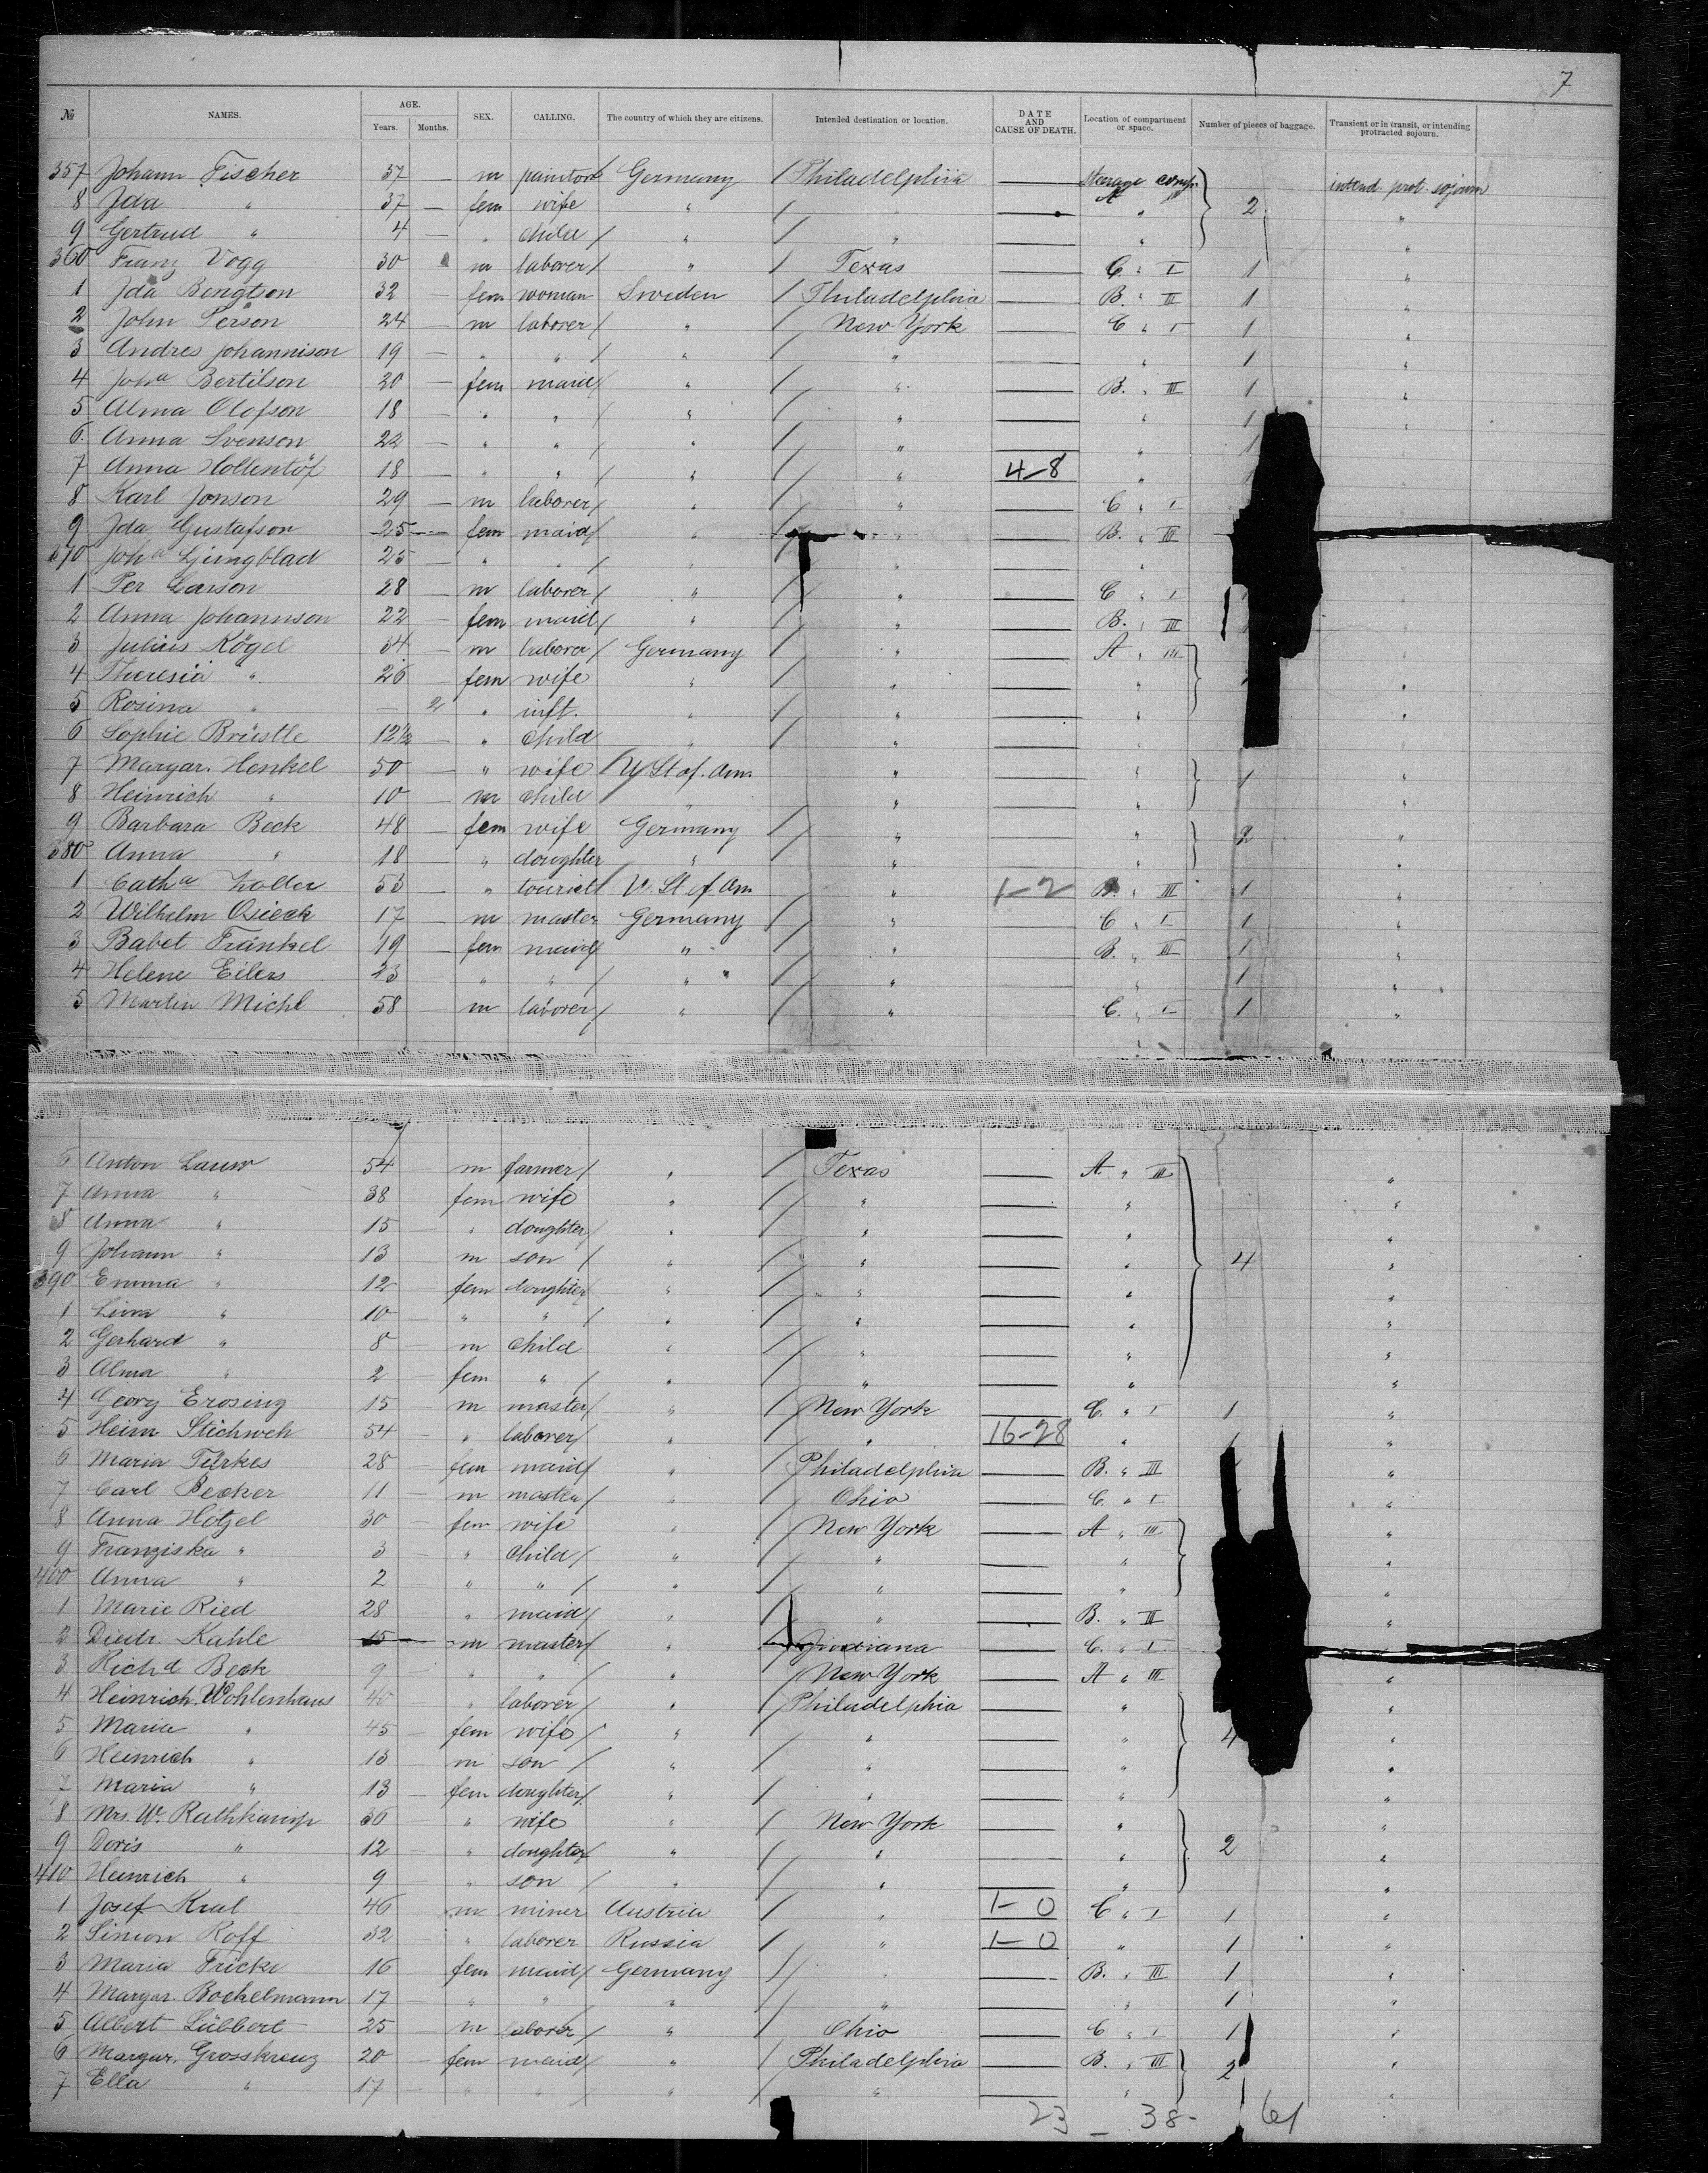 7
№ NAMES. AGE. Years. Months. SEX. CALLING. The country of which they are citizens. Intended destination or location. DATE AND CAUSE OF DEATH. Location of compartment or space. Number of pieces of baggage. Transient or in transit, or intending protracted sojourn.
357 Johann Fischer 37 — m Germany / Philadelphia — steerage comp. intend. prot. sojourn
8 Ida " 37 — fem wife " / " — A " 2 "
9 Gertrud " 4 — " child / " / " — " "
360 Franz Vogg 30 m laborer / " / Texas — C. " I 1 "
1 Ida Bengtson 32 — fem woman Sweden / Philadelphia — B. " III 1 "
2 John Person 24 — m laborer / " / New York — C " I 1 "
3 Andres Johannison 19 — " " / " / " — 1 "
4 Joha Bertilson 20 — fem maid / " / " — B. " III 1 "
5 Alma Olofson 18 — " " / " / " — " 1 "
6. Anna Svenson 22 — " " / " / " — " 1
7 Anna 18 — " " / " / " 4-8 "
8 Karl Jonson 29 — m laborer / " / " — C " I
9 Ida Gustafson 25 — fem maid / " / " — B. " III
370 Joha Ljungblad 25 — " " / " / " — "
1 Per Carson 28 — m laborer / " / " — C " I
2 Anna Johannson 22 — fem maid / " / " — B. " III
3 Julius Kögel 34 — m laborer / Germany / " — A " III
4 Theresia " 26 — fem wife " / " — " "
5 Rosina " — 2 " inft. " / " — " "
6 Sophie Brüstle 12½ — " child " / " — " "
7 Margar. Henkel 50 — " wife / U St of. Am. " — " 1 "
8 Heinrich " 10 — m child " " — " "
9 Barbara Beck 48 — fem wife Germany / " — " 2 "
380 Anna " 18 — " doughter " " — " "
1 Catha Zoller 53 — " tourist U. St of Am " 1-2 B. " III 1 "
2 Wilhelm Osieck 17 — m master Germany / " C " I 1 "
3 Babet Fränkel 19 — fem maid / " / " B. " III 1 "
4 Helene Eilers 23 — " " / " / " " 1 "
5 Martin Michl 58 — m laborer / " / " C. " I 1 "
6 Anton Lauw 54 — m farmer / " / Texas — A. " III "
7 Anna " 38 — fem wife " / " — " "
8 Anna " 15 — " doughter / " / " — " "
9 Johann " 13 — m son / " / " — " 4 "
390 Emma " 12 — fem doughter / " / " — " "
1 Lina " 10 — " " / " / " — " "
2 Gerhard " 8 — m child " / " — " "
3 Alma " 2 — fem " / " / " — " "
4 Georg Erosing 15 — m master / " / New York — C. " I 1 "
5 Heinr. Stichweh 54 — " laborer / " / " 16-28 " "
6 Maria Türkes 28 — fem maid / " / Philadelphia — B. " III "
7 Carl Becker 11 — m master / " / Ohio — C. " I "
8 Anna Hötzel 30 — fem wife " / New York — A " III "
9 Franziska " 3 — " child / " / " — " "
400 Anna " 2 — " " / " / " — " "
1 Marie Ried 28 — " maid / " / " — B. " III "
2 Diedr. Kahle 15 — m master / " — C. " I "
3 Richd Beck 9 — " " / " / New York — A " III "
4 Heinrich Wohlenhaus 40 — " laborer / " / Philadelphia — " "
5 Maria " 45 — fem wife / " / " — " 4 "
6 Heinrich " 13 — m son / " / " — " "
7 Maria " 13 — fem doughter / " / " — " "
8 Mrs. W. Rathkamp 36 — " wife " / New York — " "
9 Doris " 12 — " doughter / " / " — " 2 "
410 Heinrich " 9 — " son / " / " — " "
1 Josef Kral 46 — m miner Austria / " 1-0 C " I 1 "
2 Simon Roff 32 — " laborer Russia / " 1-0 " 1 "
3 Maria Fricke 16 — fem maid / Germany / " — B. " III 1 "
4 Margar. Bockelmann 17 — " " " / " — " 1 "
5 Albert Lübbert 25 — m laborer / " / Ohio — C " I 1 "
6 Margar. Grosskreuz 20 — fem maid / " / Philadelphia — B. " III 2 "
7 Ella " 17 — " " / " / " — " "
23 — 38 - 61